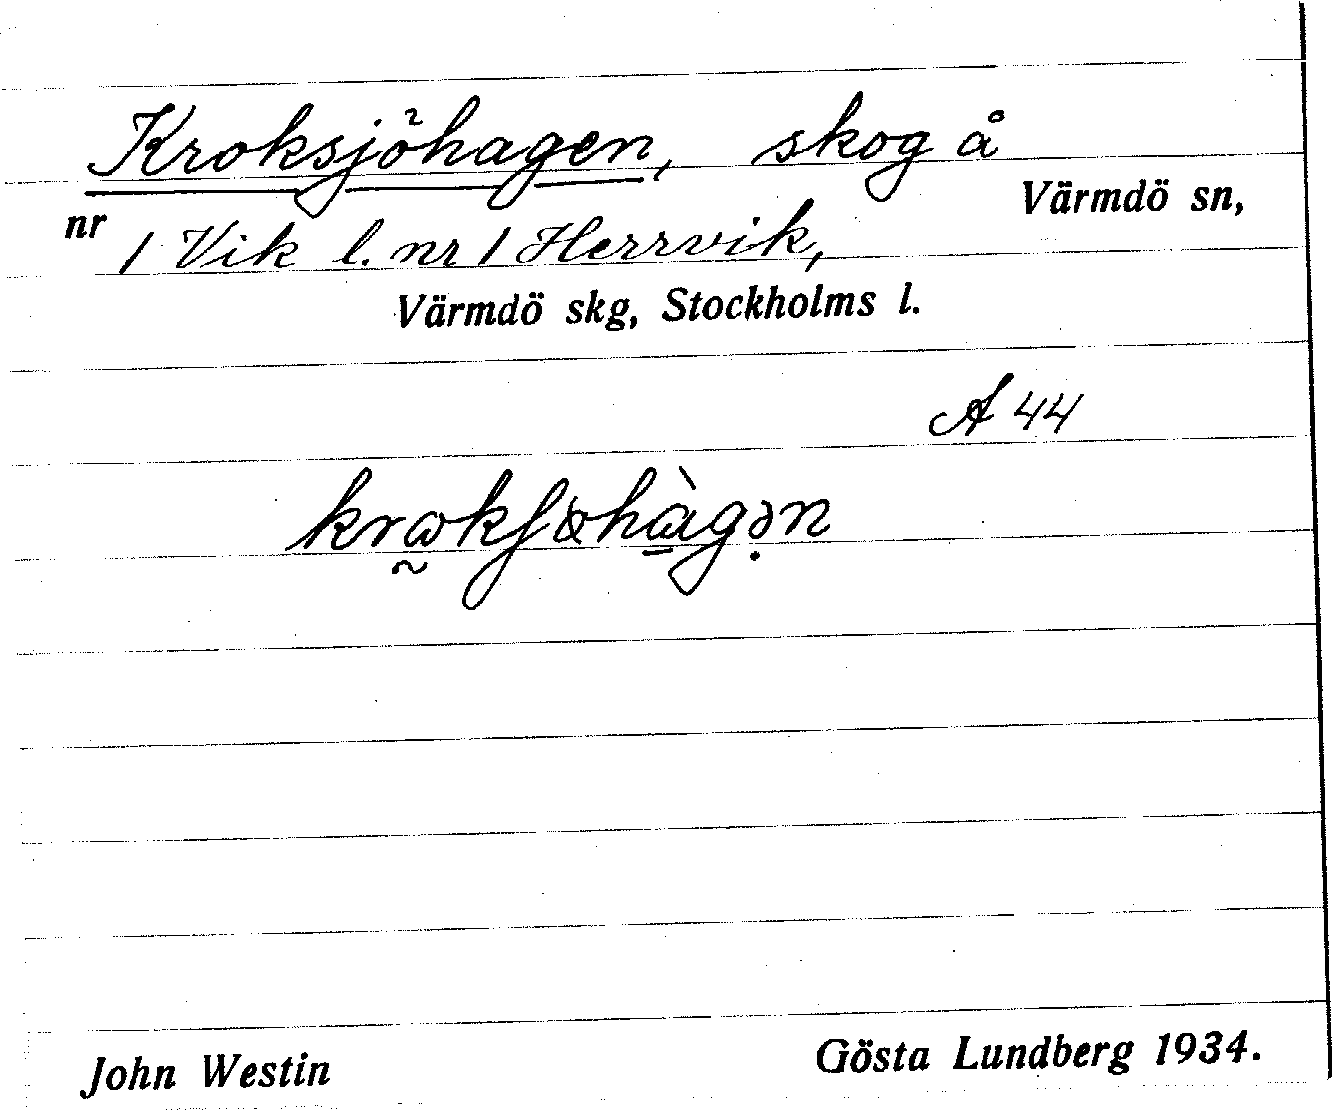 Kroksjöhagen, skog å
Värmdö sn,
nr 1 Vik l. nr 1 Herrvik,
Värmdö skg, Stockholms l.
A 44
John Westin
Gösta Lundberg 1934.